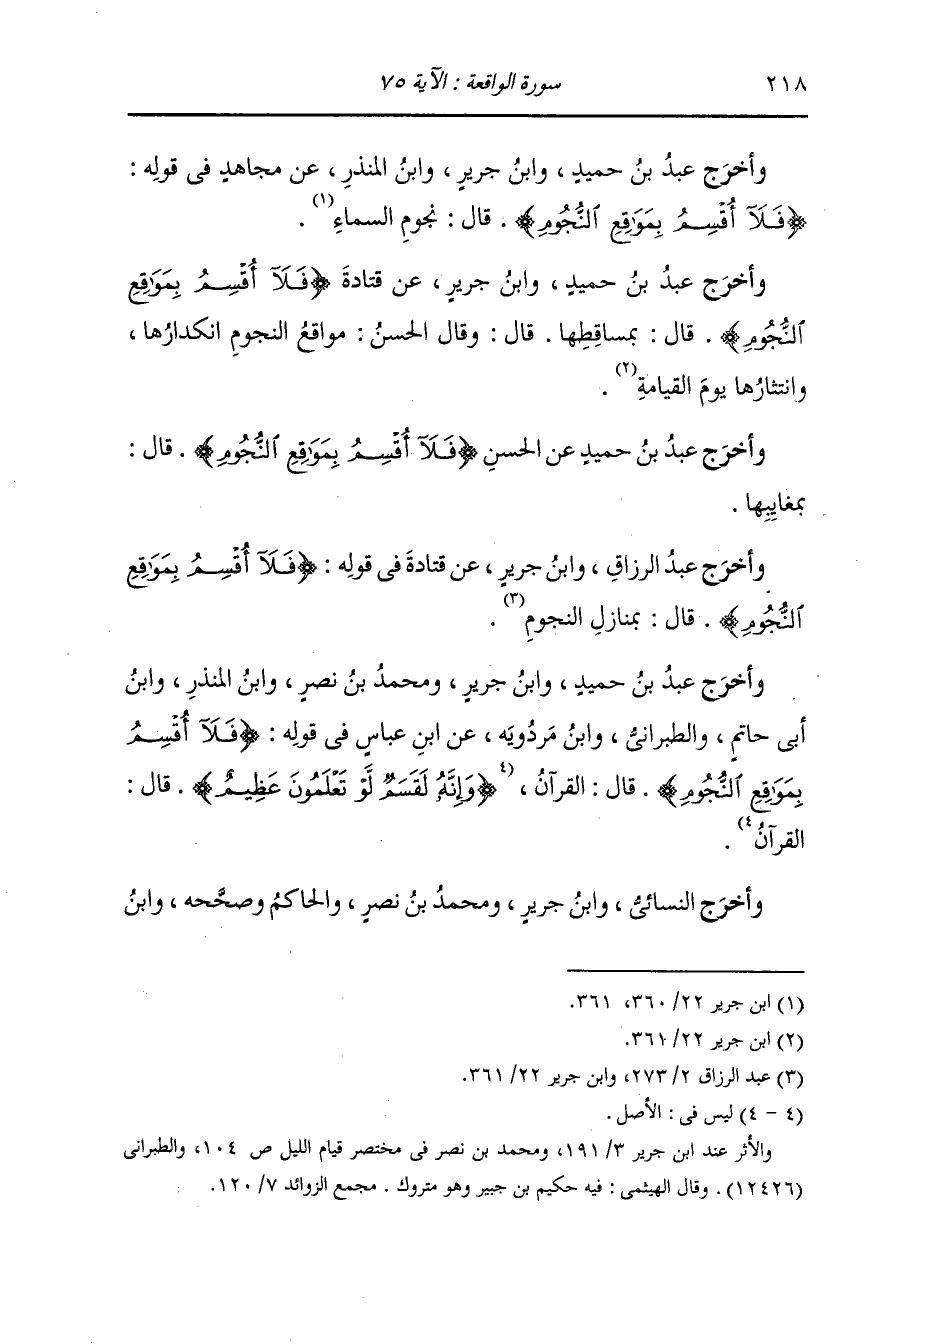 ٢١٨ سورة الواقعة : الآية ٧٥
وأخرَج عبدُ بنُ حميدٍ ، وابنُ جريرٍ ، وابنُ المنذرِ ، عن مجاهدٍ فى قولِه :
﴿فَلَآ أُقْسِمُ بِمَوَٰقِعِ ٱلنُّجُومِ﴾ . قال : نجومِ السماءِ(١) .
وأخرَج عبدُ بنُ حميدٍ ، وابنُ جريرٍ ، عن قتادةَ ﴿فَلَآ أُقْسِمُ بِمَوَٰقِعِ
ٱلنُّجُومِ﴾ . قال : بمساقِطِها . قال : وقال الحسنُ : مواقعُ النجومِ انكدارُها ،
وانتثارُها يومَ القيامةِ(٢) .
وأخرَج عبدُ بنُ حميدٍ عن الحسنِ ﴿فَلَآ أُقْسِمُ بِمَوَٰقِعِ ٱلنُّجُومِ﴾ . قال :
بمغايِبِها .
وأخرَج عبدُ الرزاقِ ، وابنُ جريرٍ ، عن قتادةَ فى قولِه : ﴿فَلَآ أُقْسِمُ بِمَوَٰقِعِ
ٱلنُّجُومِ﴾ . قال : بمنازلِ النجومِ(٣) .
وأخرَج عبدُ بنُ حميدٍ ، وابنُ جريرٍ ، ومحمدُ بنُ نصرٍ ، وابنُ المنذرِ ، وابنُ
أبى حاتمٍ ، والطبرانىُّ ، وابنُ مَردُويَه ، عن ابنِ عباسٍ فى قولِه : ﴿فَلَآ أُقْسِمُ
بِمَوَٰقِعِ ٱلنُّجُومِ﴾ . قال : القرآنُ ، (٤﴿وَإِنَّهُۥ لَقَسَمٌ لَّوْ تَعْلَمُونَ عَظِيمٌ﴾ . قال :
القرآنُ٤) .
وأخرَج النسائىُّ ، وابنُ جريرٍ ، ومحمدُ بنُ نصرٍ ، والحاكمُ وصحَّحه ، وابنُ
(١) ابن جرير ٢٢/ ٣٦٠، ٣٦١.
(٢) ابن جرير ٢٢/ ٣٦١.
(٣) عبد الرزاق ٢/ ٢٧٣، وابن جرير ٢٢/ ٣٦١.
(٤ - ٤) ليس فى : الأصل .
والأثر عند ابن جرير ٣/ ١٩١، ومحمد بن نصر فى مختصر قيام الليل ص ١٠٤، والطبرانى
(١٢٤٢٦) . وقال الهيثمى : فيه حكيم بن جبير وهو متروك . مجمع الزوائد ٧/ ١٢٠.